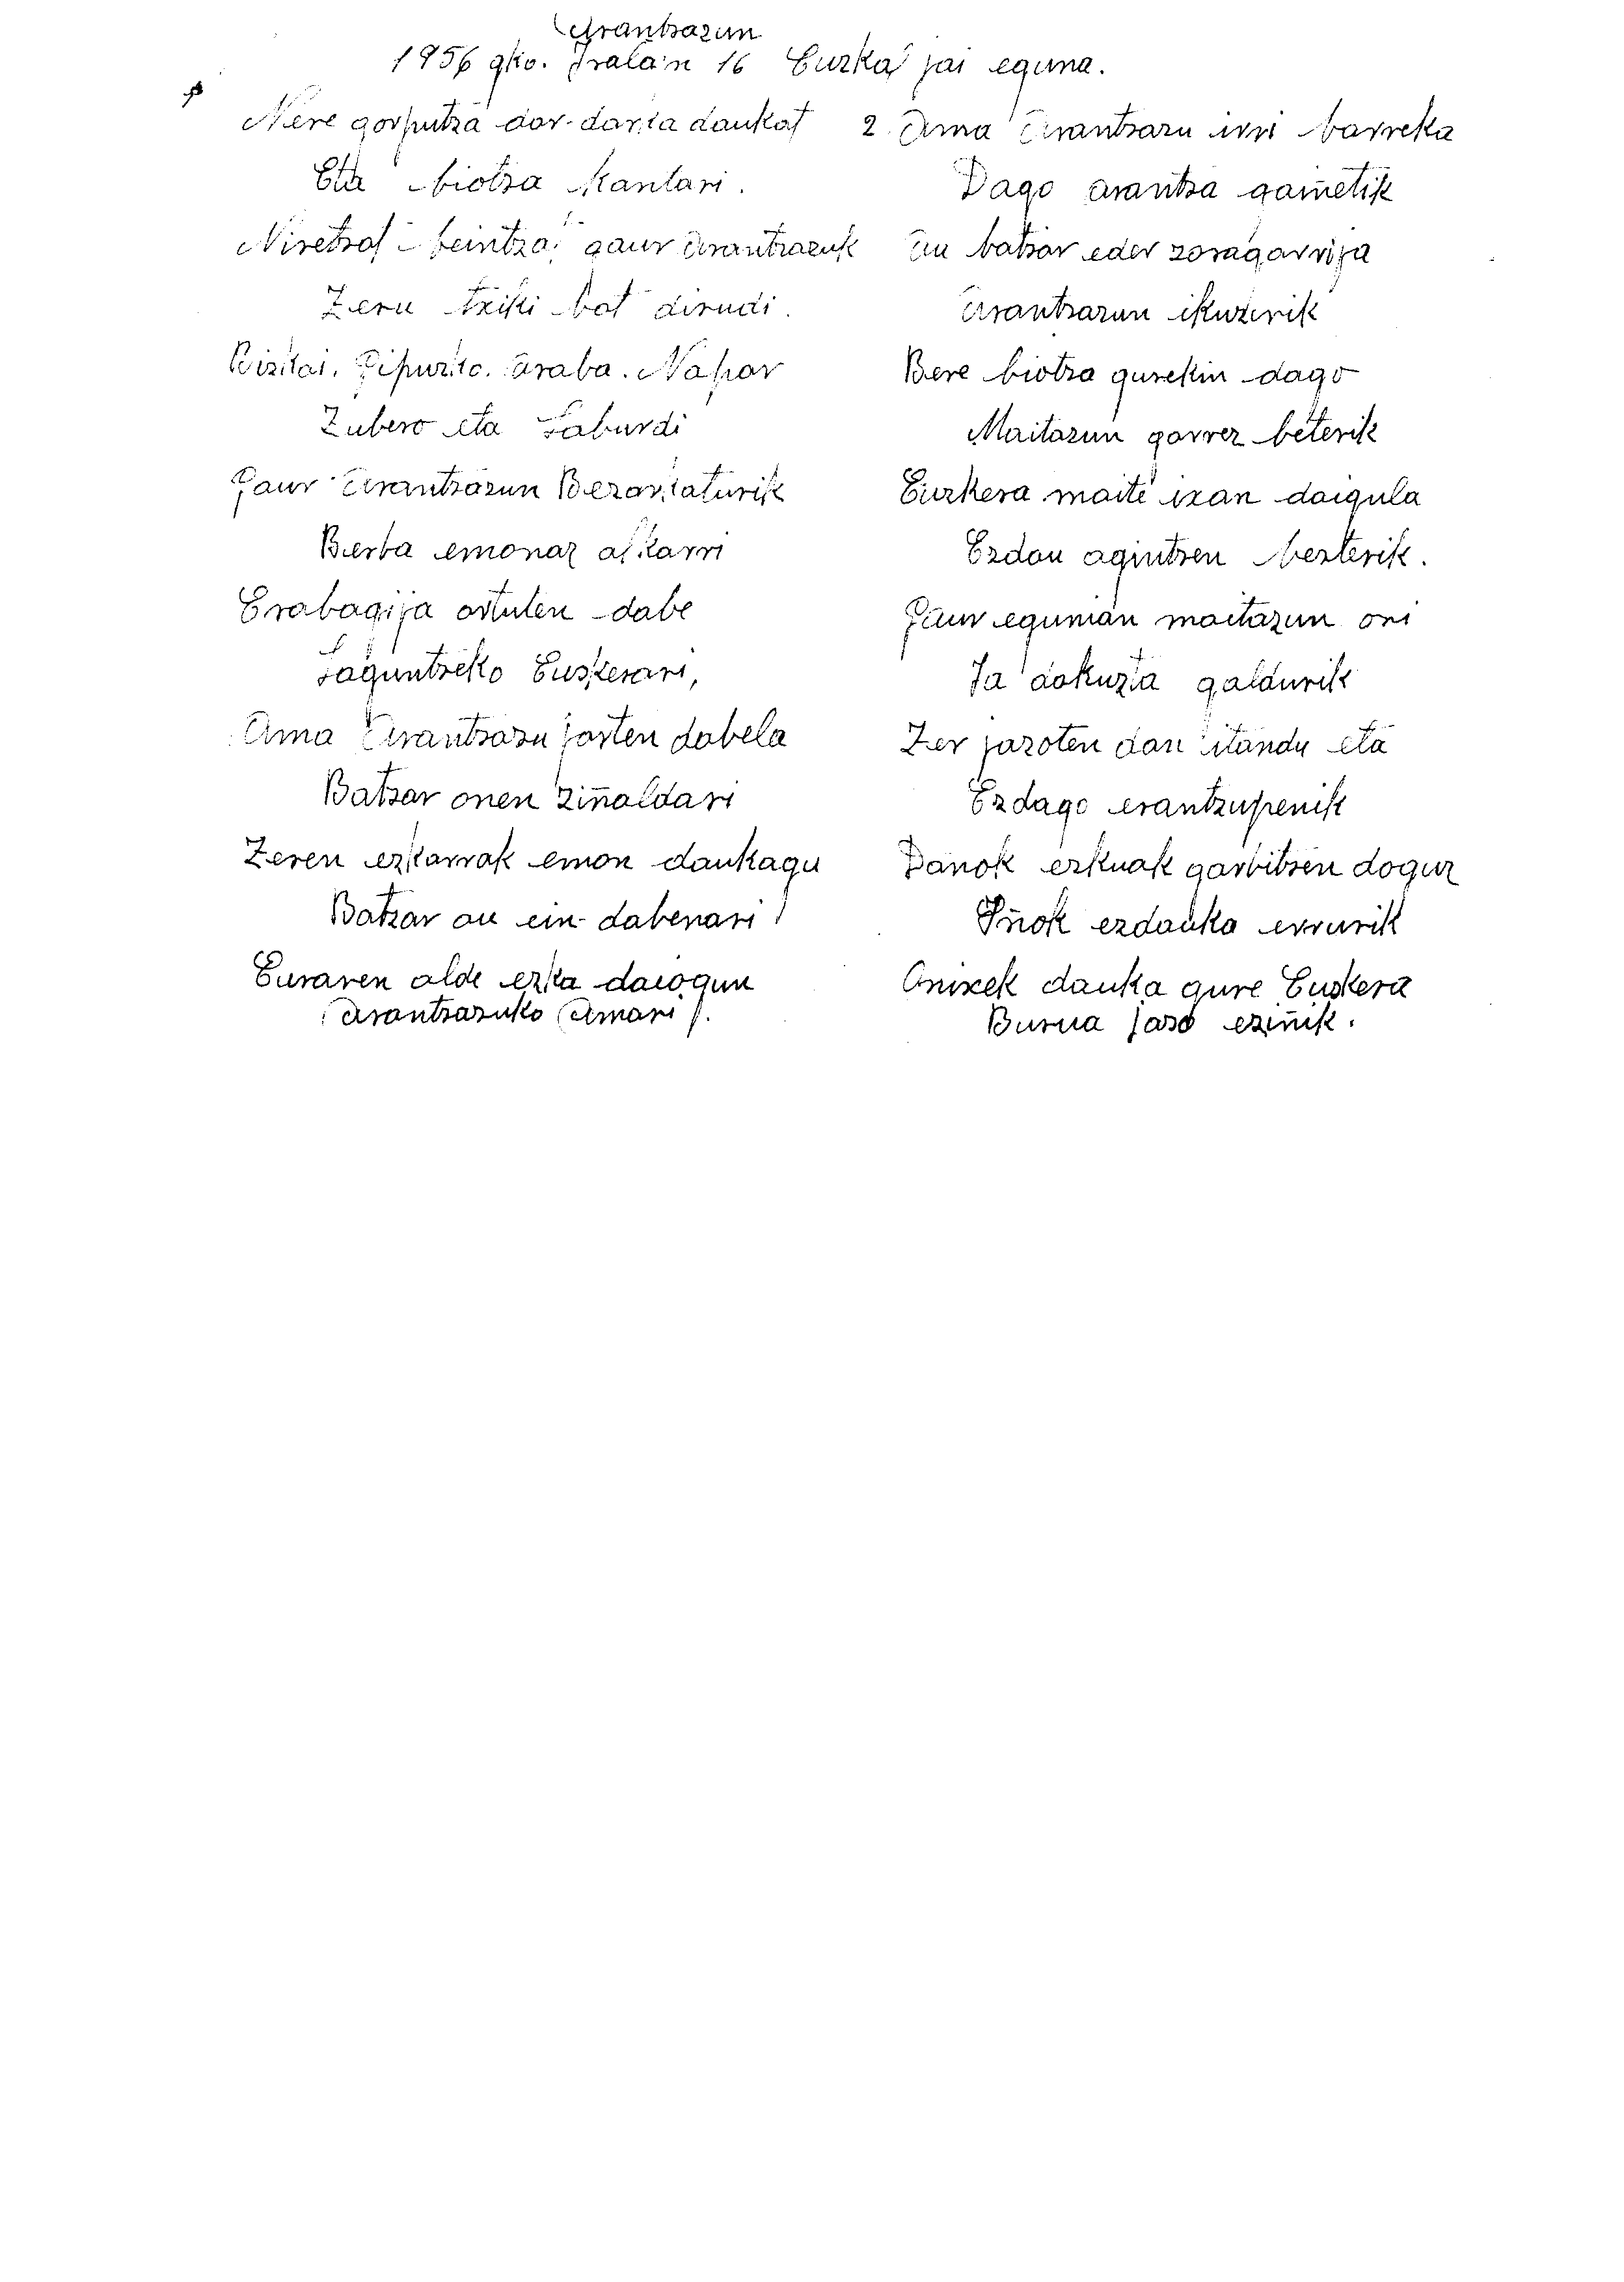 Arantzazun
1956 gko. Irala'n 16 Euzka' jai eguna.
Nere gorputza dar-darka daukat
Eta biotza kantari.
Niretzat beintzat gaur Arantzazuk
Zeru txiki bat dirudi.
Bizkai. Gipuzko. Araba. Napar
Zubero eta Laburdi
Gaur Arantzazun Bezarkaturik
Berba emonaz alkarri
Erabagija artuten dabe
Laguntzeko Euskerari,
Ama Arantzazu jarten dabela
Batzar onen ziñaldari
Zeren ezkarrak emon daukagu
Batzar au ein dabenari
Euraren alde ezka daiogun
Arantzazuko Amari.
2 Ama Arantzazu irri barreka
Dago arantza gañetik
Au batzar eder zoragarrija
Arantzazun ikuzirik
Bere biotza gurekin dago
Maitazun garrez beterik
Euzkera maite izan daigula
Ezdau agintzen bezterik.
Gaur egunian maitazun ori
Ja dakuzta galdurik
Zer jazoten dan itandu eta
Ezdago erantzupenik
Danok ezkuak garbitzen doguz
Iñok ezdauka errurik
Onixek dauka gure Euskera
Burua jaso eziñik.